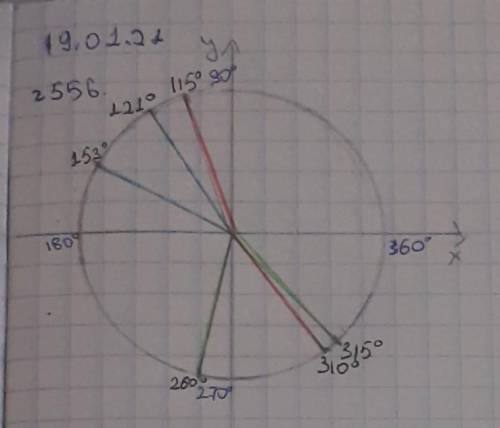 19.01.21
2556.
y
90°
115°
121°
153°
180°
360°
x
315°
310°
260°
270°